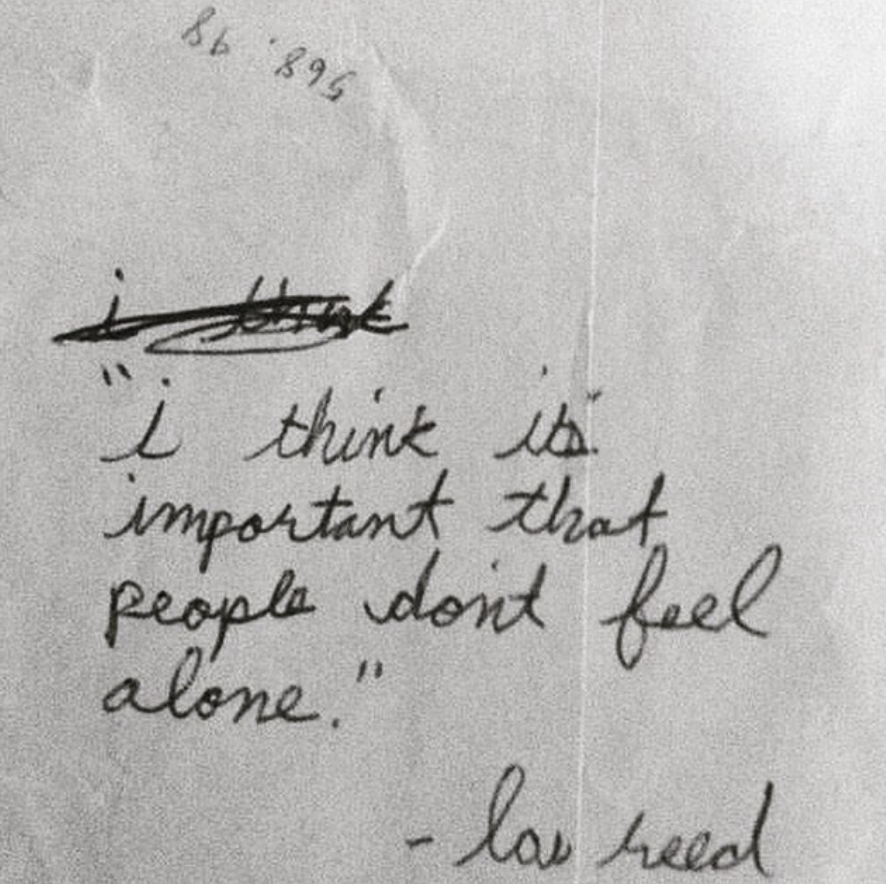 i think
"i think it's
important that
people don't feel
alone."
- lou reed